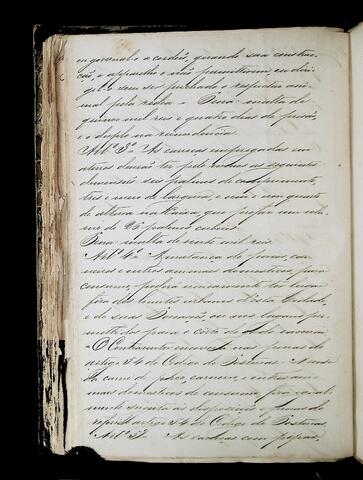 ou governal-o a cordão, quando sua construc-
ção, o apparelho o não permittirem, ou diri-
gil-o sem se
puchado o respectivo ani-
mal pela rédea. Pena: multa de
quinze mil reis e quatro dias de prisão,
e o duplo na reincidencia.
Artº 3º As carroças empregadas em
aterros deverão ter pelo menos as seguintes
dimensões: seis palmos de comprimento,
tres e meio de largura, e um e um quarto
de altura na caixa, que prefaz um volu-
me de 26 palmos cubicos.
Pena: multa de vinte mil reis.
Artº 4º Matança de porcos, car-
neiros e outros animaes domesticos, para
consumo, poderá unicamente ter lugar
fóra dos limites urbanos desta Cidade,
e de suas Povoações, ou nos lugares per-
mittidos para o córte de
O Contraventor incorrerá nas penas do
artigo 54 do Codigo de Posturas. A venda
da carne de porco, carneiro, e outros ani-
maes domesticos de consumo fica igual-
mente sujeita às disposições e penas do
artigo 54 do Codigo de Posturas.
Artº 5º As carroças com